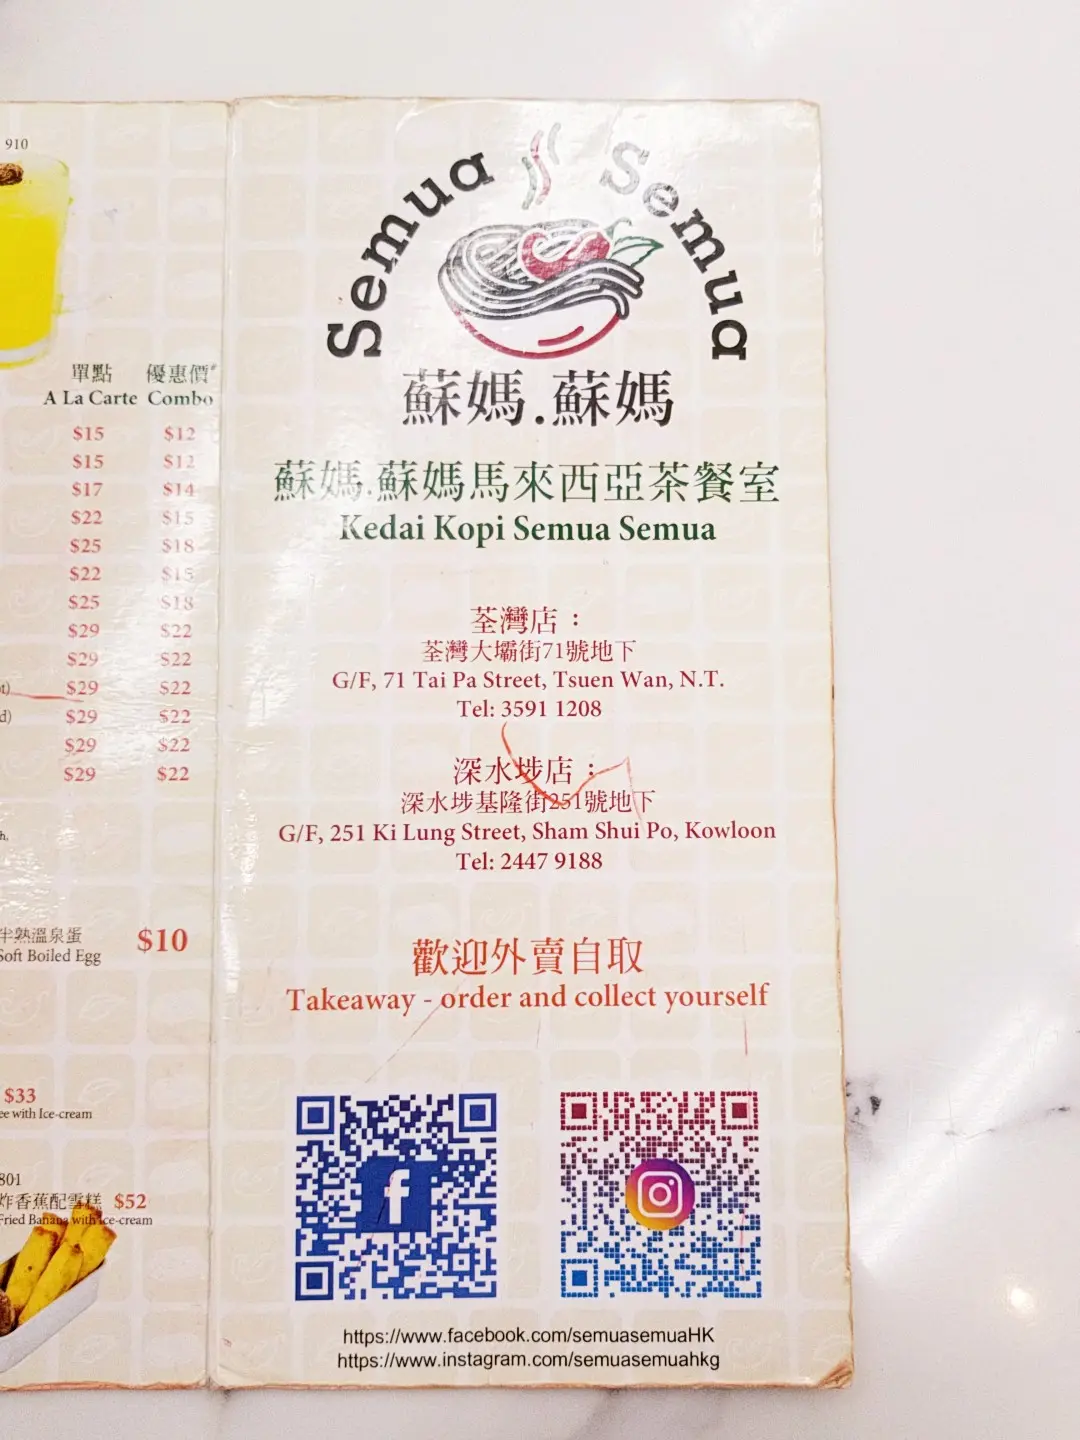 910
單點 優惠價#
A La Carte Combo
$15 $12
$15 $12
$17 $14
$22 $15
$25 $18
$22 $15
$25 $18
$29 $22
$29 $22
$29 $22
$29 $22
$29 $22
$29 $22
半熟溫泉蛋 $10
Soft Boiled Egg
$33
with Ice-cream
801
炸香蕉配雪糕 $52
Fried Banana with Ice-cream
Semua Semua
蘇媽.蘇媽
蘇媽.蘇媽馬來西亞茶餐室
Kedai Kopi Semua Semua
荃灣店：
荃灣大壩街71號地下
G/F, 71 Tai Pa Street, Tsuen Wan, N.T.
Tel: 3591 1208
深水埗店：
深水埗基隆街251號地下
G/F, 251 Ki Lung Street, Sham Shui Po, Kowloon
Tel: 2447 9188
歡迎外賣自取
Takeaway - order and collect yourself
f
https://www.facebook.com/semuasemuaHK
https://www.instagram.com/semuasemuahkg